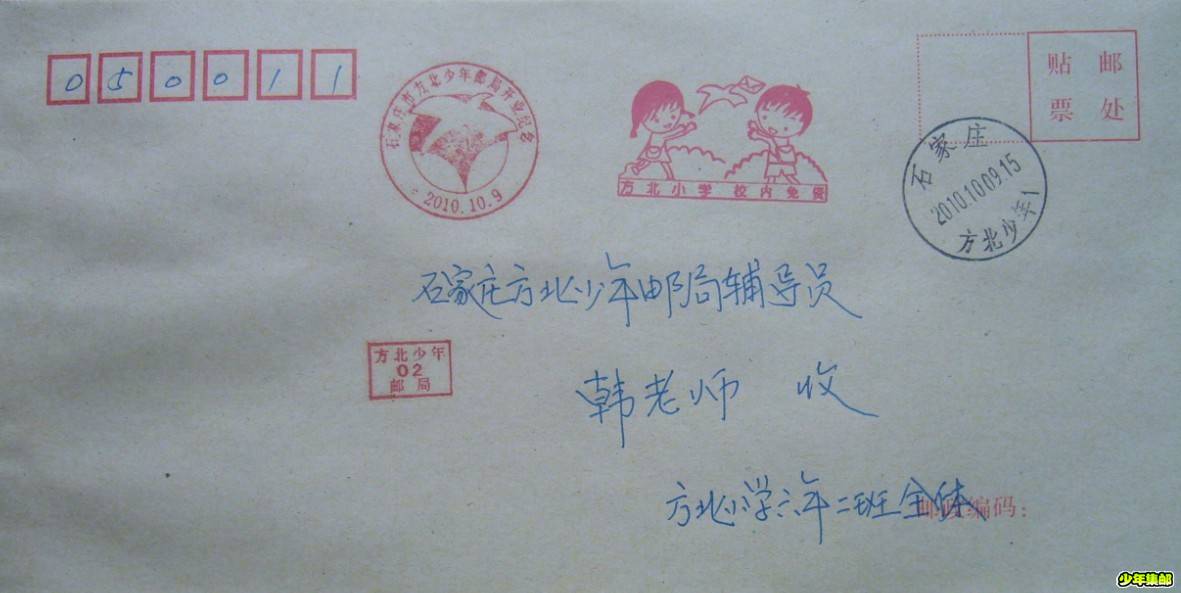 050011
石家庄市方北少年邮局开业纪念
2010.10.9
方北小学 校内免费
贴 邮
票 处
石家庄
2010.10.09.15
方北少年1
石家庄方北少年邮局辅导员
方北少年
02
邮局
韩老师 收
方北小学六年二班全体
邮政编码：
少年集邮